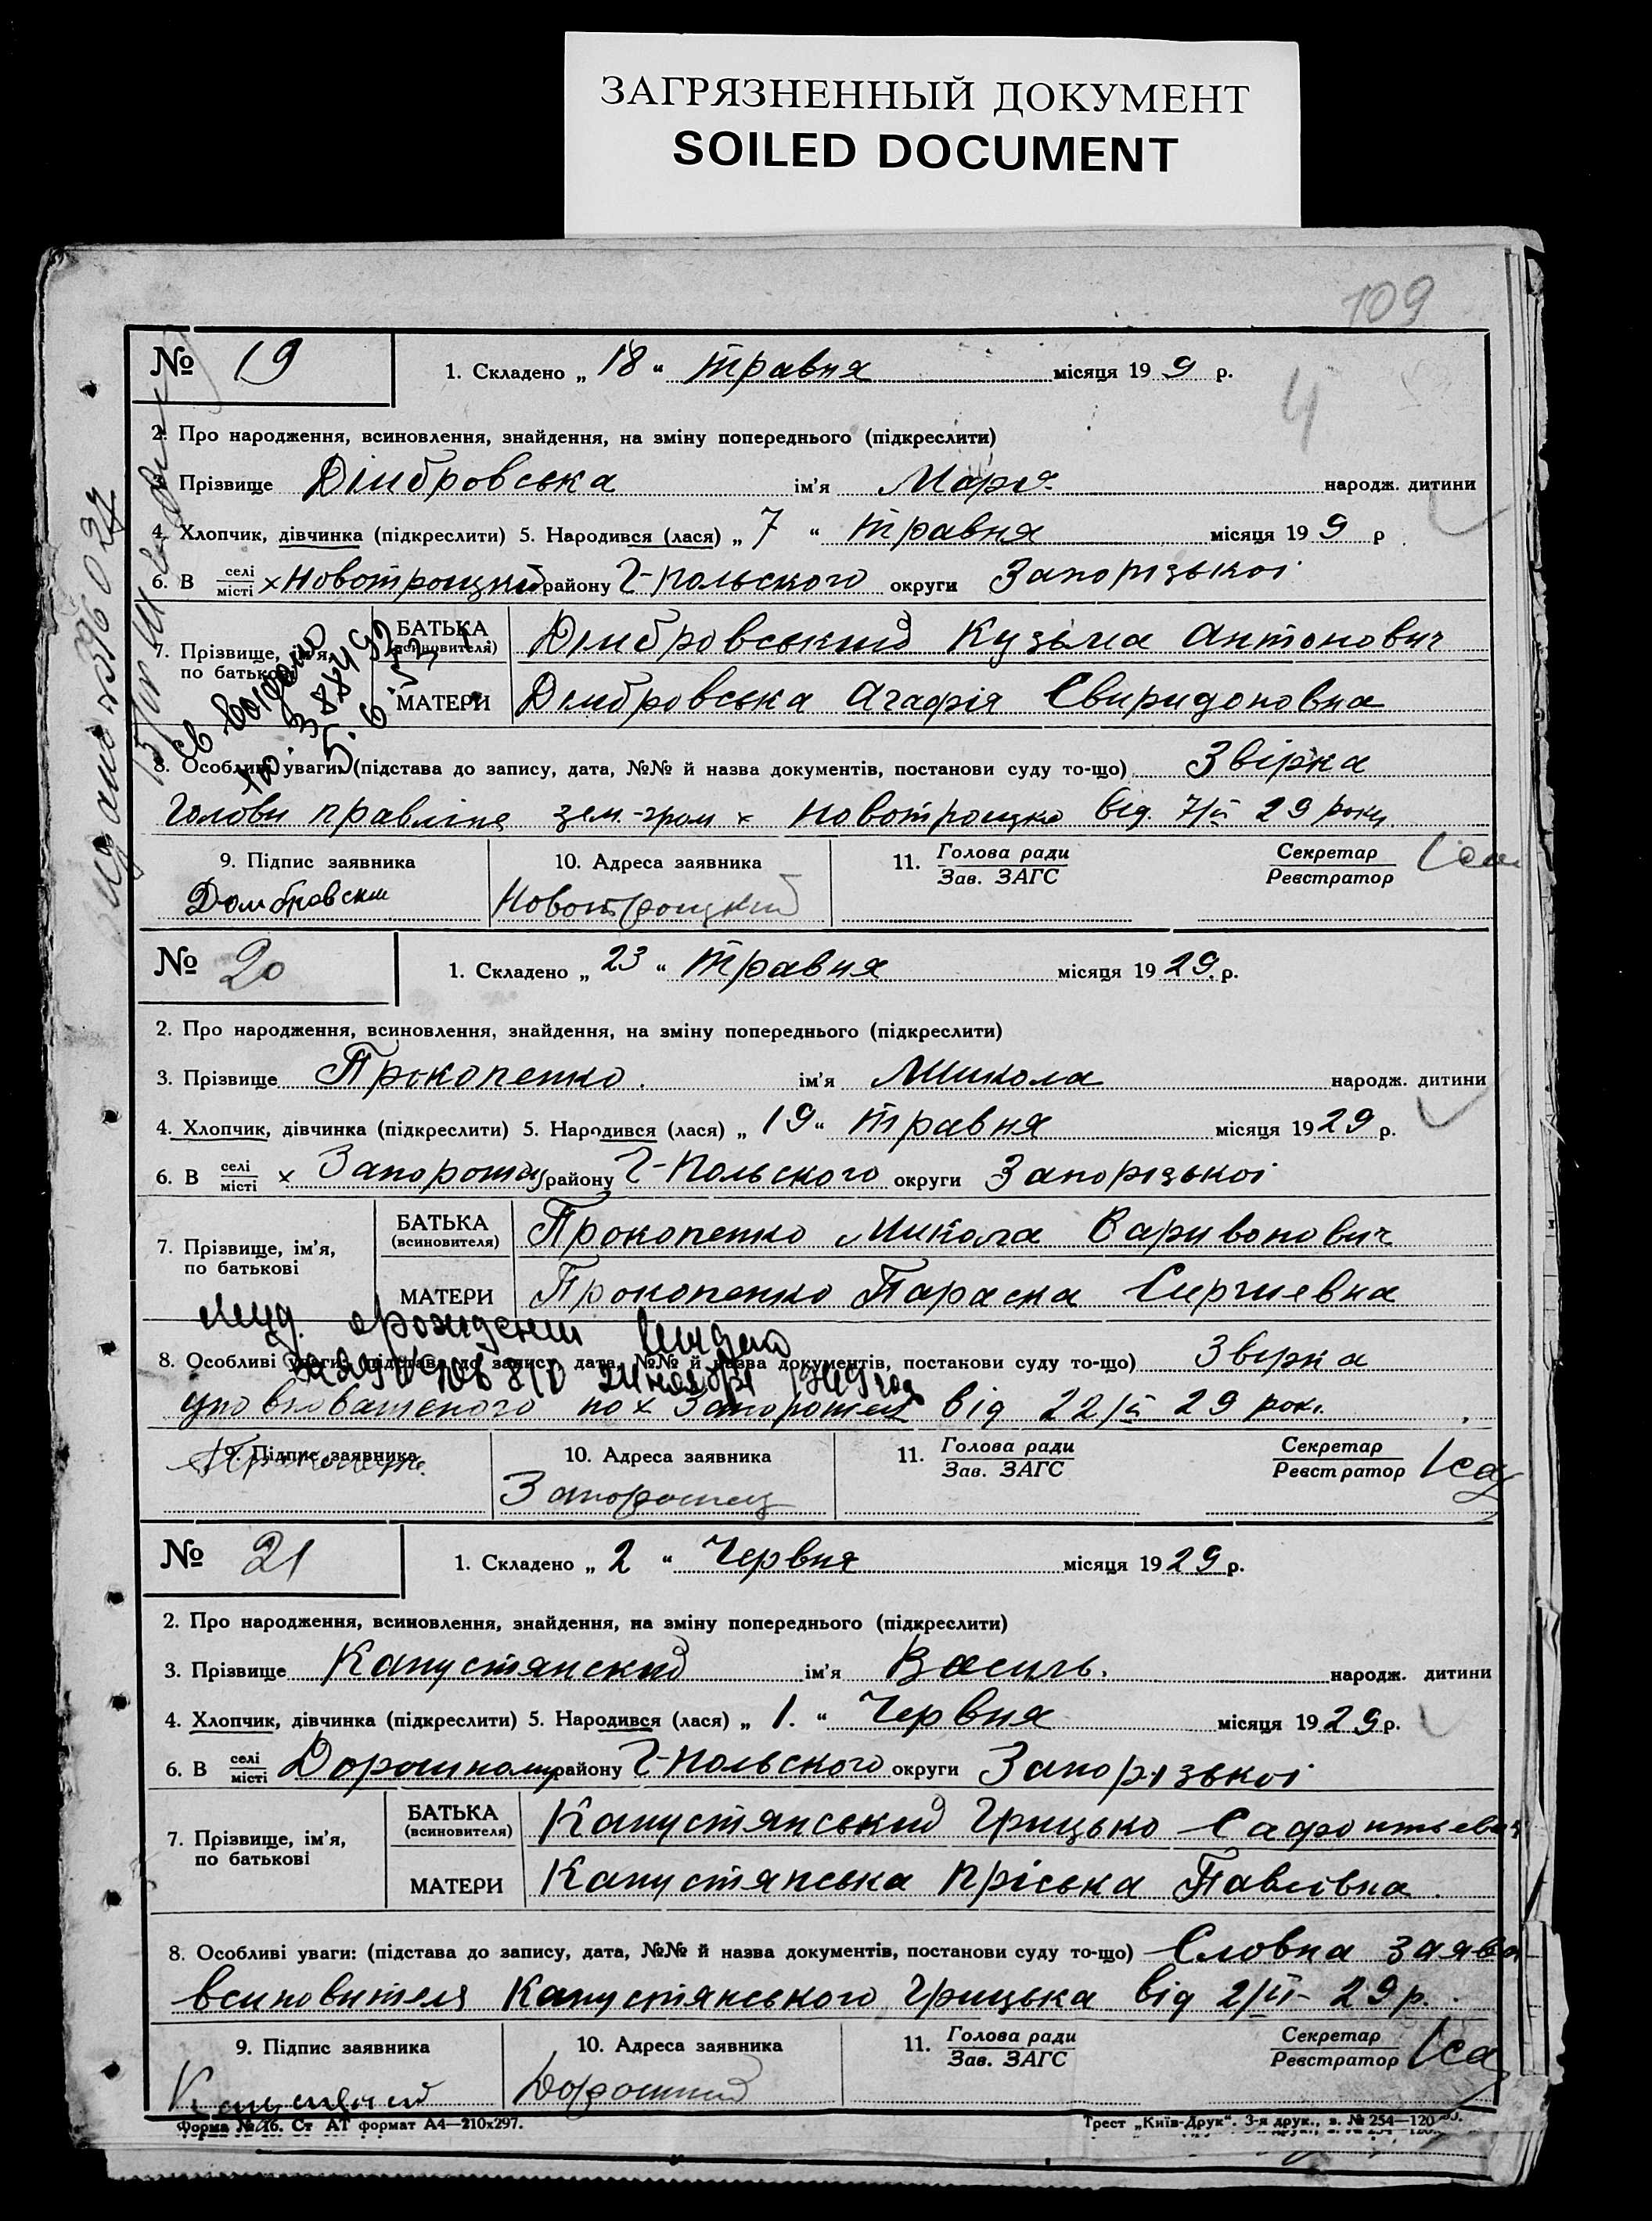 ЗАГРЯЗНЕННЫЙ ДОКУМЕНТ
SOILED DOCUMENT
109
№ 19
1. Складено „ 18 “ травня місяця 19 9 р.
4
2. Про народження, всиновлення, знайдення, на зміну попереднього (підкреслити)
Прізвище Дімбровська ім'я Марія народж. дитини
4. Хлопчик, дівчинка (підкреслити) 5. Народився (лася) „ 7 “ травня місяця 19 9 р
6. В селі місті х Новотроицкий району Г-Польского округи Запорізької
7. Прізвище, ім'я, по батькові
БАТЬКА (всиновителя) Дімбровський Кузьма Антонович
МАТЕРИ Дімбровська Агафія Свиридоновна
св выдано
5. 6
8. Особливі уваги: (підстава до запису, дата, №№ й назва документів, постанови суду то-що) Звірка
Голови правліня зем.-гром х Новотроицко від 7/V 29 року
9. Підпис заявника
10. Адреса заявника
11. Голова ради Зав. ЗАГС
Секретар Реєстратор
Домбровски
Новотроицкий
№ 20
1. Складено „ 23 “ травня місяця 19 29. р.
2. Про народження, всиновлення, знайдення, на зміну попереднього (підкреслити)
3. Прізвище Прокопенко. ім'я Микола народж. дитини
4. Хлопчик, дівчинка (підкреслити) 5. Народився (лася) „ 19 “ травня місяця 19 29 р.
6. В селі місті х Запорожец району Г-Польского округи Запорізької
7. Прізвище, ім'я, по батькові
БАТЬКА (всиновителя) Прокопенко Микола Саривонович
МАТЕРИ Прокопенко Параска Сиргиевна
о рождении выдано
24 ноября 1949 год
8. Особливі уваги: підстава до запису, дата, №№ й назва документів, постанови суду то-що) Звірка
уповноваженого по х Запорожец від 22/V 29 рокі.
9. Підпис заявника
10. Адреса заявника
11. Голова ради Зав. ЗАГС
Секретар Реєстратор
Запорожец
№ 21
1. Складено „ 2 “ Червня місяця 19 29 р.
2. Про народження, всиновлення, знайдення, на зміну попереднього (підкреслити)
3. Прізвище Капустянский ім'я Василь. народж. дитини
4. Хлопчик, дівчинка (підкреслити) 5. Народився (лася) „ 1. “ Червня місяця 19 29 р.
6. В селі місті Дорошиному району Г-Польского округи Запорізької
7. Прізвище, ім'я, по батькові
БАТЬКА (всиновителя) Капустянський Грицько Сафонтьевич
МАТЕРИ Капустянська Пріська Павлівна.
8. Особливі уваги: (підстава до запису, дата, №№ й назва документів, постанови суду то-що) Словна заява
всиновителя Капустянського Грицька від 2/VI- 29 р.
9. Підпис заявника
10. Адреса заявника
11. Голова ради Зав. ЗАГС
Секретар Реєстратор
Форма № 16. Ст АТ формат А4—210x297.
Трест „Київ-Друк“. 3-я друк., з. № 254—120